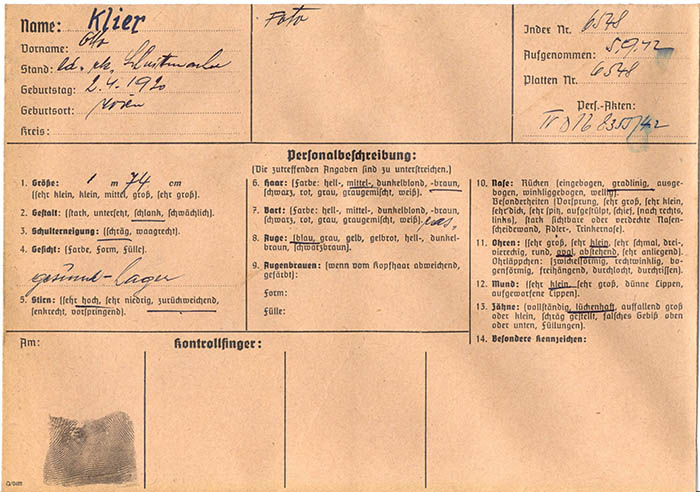 Name: Klier
Vorname: Otto
Stand: led. ek. Schuhmacher
Geburtstag: 2.4.1920
Geburtsort:
Kreis:
Foto
Index Nr. 6548
Aufgenommen: 5.9.42
Platten Nr. 6548
Pers.-Akten:
IV D
Personalbeschreibung:
(Die zutreffenden Angaben sind zu unterstreichen.)
1. Größe: 1 m 74 cm
(sehr klein, klein, mittel, groß, sehr groß).
2. Gestalt: (stark, untersetzt, schlank, schwächlich).
3. Schulterneigung: (schräg, waagrecht).
4. Gesicht: (Farbe, Form, Fülle).
5. Stirn: (sehr hoch, sehr niedrig, zurückweichend,
senkrecht, vorspringend).
6. Haar: (Farbe: hell-, mittel-, dunkelblond, -braun,
schwarz, rot, grau, graugemischt, weiß).
7. Bart: (Farbe: hell-, mittel-, dunkelblond, -braun,
schwarz, rot, grau, graugemischt, weiß)
8. Auge: (blau, grau, gelb, gelbrot, hell-, dunkel-
braun, schwarzbraun).
9. Augenbrauen: (wenn vom Kopfhaar abweichend,
gefärbt):
Form:
Fülle:
10. Nase: Rücken (eingebogen, gradlinig, ausge-
bogen, winkliggebogen, wellig).
Besonderheiten (Vorsprung, sehr groß, sehr klein,
sehr dick, sehr spitz, aufgestülpt, schief, (nach rechts,
links), stark sichtbare oder verdeckte Nasen-
scheidewand, Adler-, Trinkernase).
11. Ohren: (sehr groß, sehr klein, sehr schmal, drei-
viereckig, rund, oval, abstehend, sehr anliegend).
Ohrläppchen: (zwickelförmig, rechtwinklig, bo-
genförmig, freihängend, durchlocht, durchrissen).
12. Mund: (sehr klein, sehr groß, dünne Lippen,
aufgeworfene Lippen).
13. Zähne: (vollständig, lückenhaft, auffallend groß
oder klein, schräg gestellt, falsches Gebiß oben
oder unten, Füllungen).
14. Besondere Kennzeichen:
Am:
Kontrollfinger: